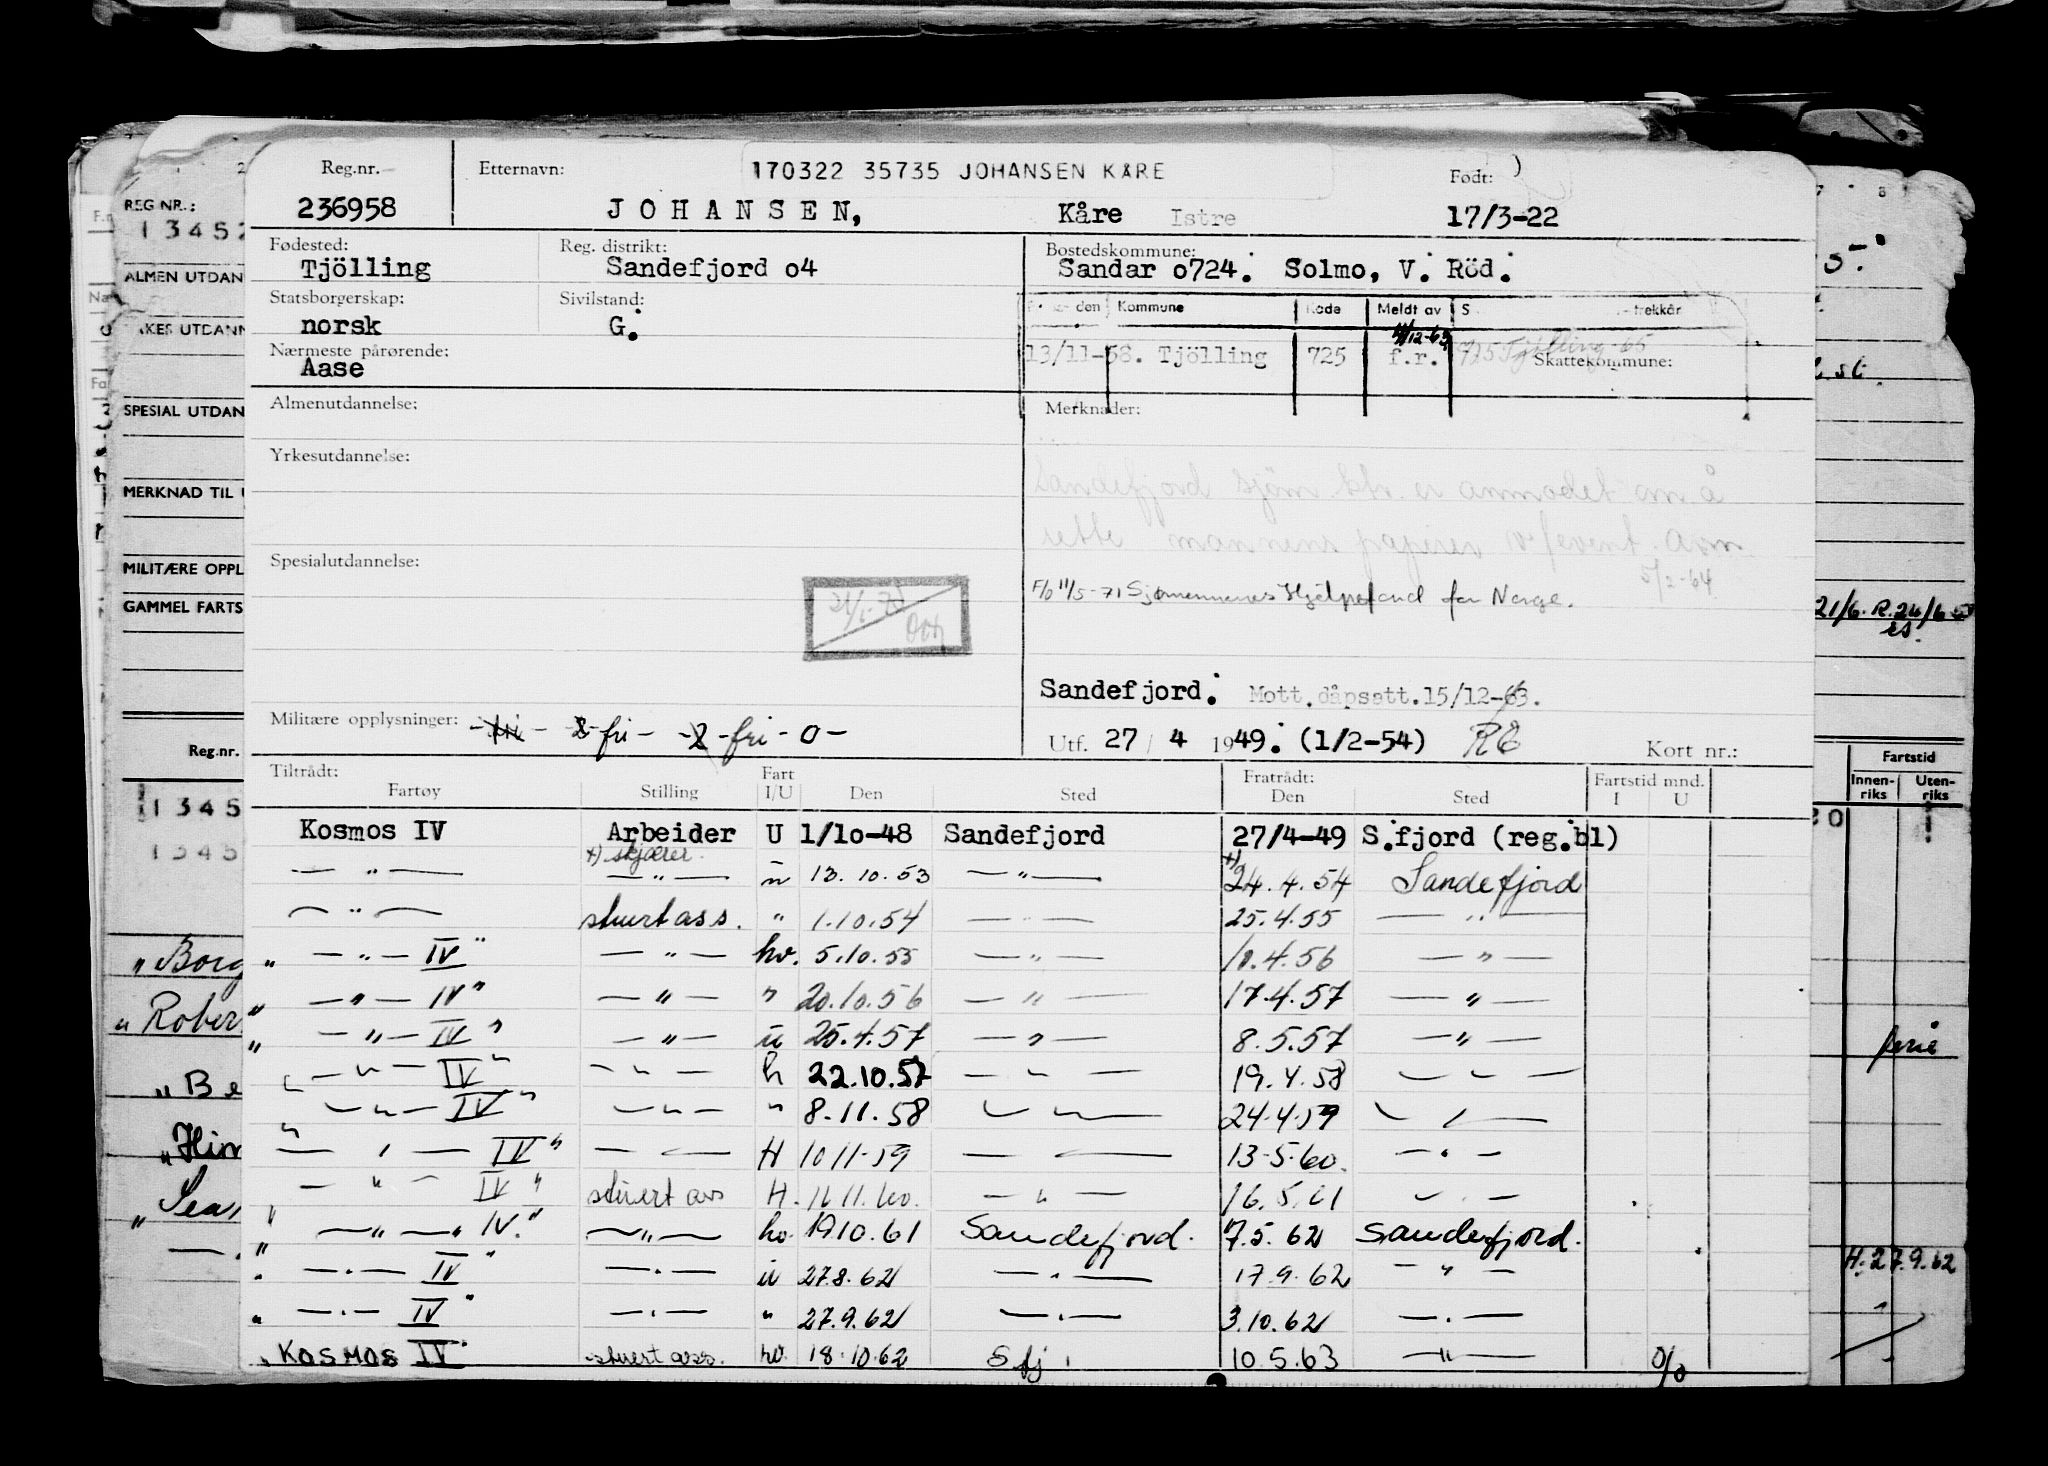 Reg.nr. Etternavn: 170322 35735 JOHANSEN KÅRE Født:
236958 JOHANSEN, Kåre Istre 17/3-22
Fødested: Reg. distrikt: Bostedskommune:
Tjölling Sandefjord o4 Sandar o724. Solmo, V. Röd.
Statsborgerskap: Sivilstand: den Kommune Kode Meldt av S trekkår
norsk G. 11/12-63
Nærmeste pårørende: 13/11-58. Tjölling 725 f.r. 725 Tjölling-65
Aase Skattekommune:
Almenutdannelse: Merknader:
Yrkesutdannelse:
Sandefjord sjöm. ktr. er anmodet om å
rette mannens papirer v/event. anm.
5/2-64
Spesialutdannelse:
F/o 11/5-71 Sjømennenes Hjelpefond for Norge.
Sandefjord. Mott.dåpsatt.15/12-63.
Militære opplysninger: -fri- 2-fri- -2-fri-0-
Utf. 27/4 1949. (1/2-54) Kort nr.:
Tiltrådt: Fratrådt:
Fartøy Stilling Fart I/U Den Sted Den Sted Fartstid mnd. I U
Kosmos IV Arbeider U 1/1o-48 Sandefjord 27/4-49 S.fjord (reg.bl)
+) skjærer
— " — — " — u 13.10.53 — " — +) 24.4.54 Sandefjord
— " — stuertass. " 1.10.54 — " — 25.4.55 — " —
" — " — IV" — " — hv. 5.10.55 — " — 10.4.56 — " —
" — " — IV" — " — " 20.10.56 — " — 17.4.57 — " —
" — " — IV" — " — u 25.4.57 — " — 8.5.57 — " —
" — " — IV" — " — h 22.10.57 — " — 19.4.58 — " —
" — " — IV" — " — " 8.11.58 — " — 24.4.59 — " —
" — " — IV" — " — H 10 11-59 — " — 13-5-60. — " —
" — " — IV" stuert ass H. 11.11.60. — " — 16.5.61 — " —
" — " — IV." — " — hv. 19 10.61 Sandefjord. 7.5.62 Sandefjord.
" — " — IV" — " — u 27.8.62 — " — 17.9.62 — " —
" — " — IV" — " — " 27.9.62 — " — 3.10.62 — " —
" KOSMOS IV" stuert ass. hv. 18.10.62 Sfj. 10.5.63 — " — o/o
REG NR.:
ALMEN UTDAN
YRKES UTDANN
SPESIAL UTDAN
MERKNAD TIL
MILITÆRE OPPL
GAMMEL FARTS
Reg.nr.
1345
1345
" Borg
" Rober
" Be
21/6. R. 24/6
Fartstid
Innen-riks Uten-riks
ferie
H. 27.9.62